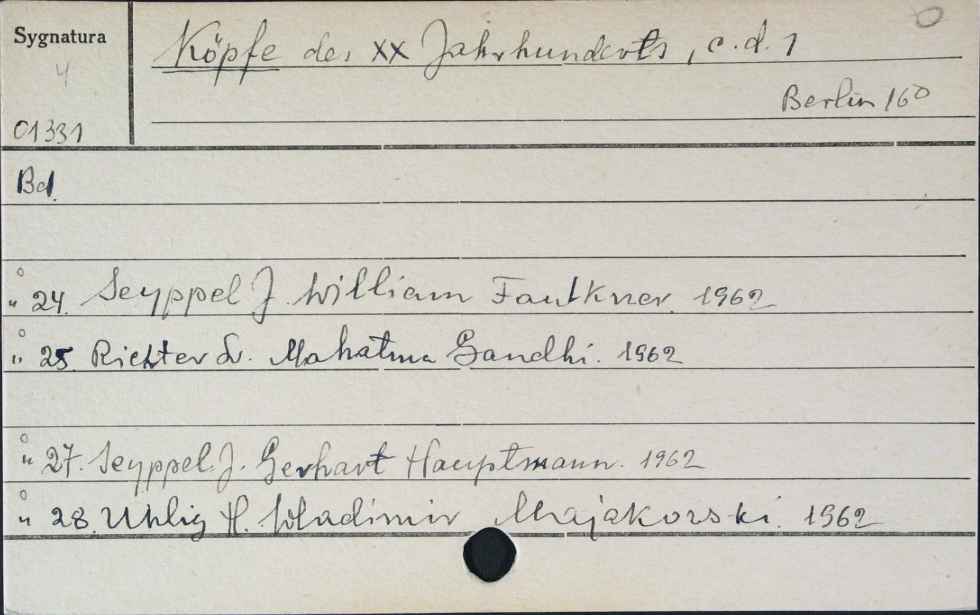 Sygnatura
Köpfe des XX Jahrhunderts, c.d. 1
4
Berlin 160
01331
Bd.
" 24. Seyppel J. William Faulkner. 1962
" 25. Richter L. Mahatma Gandhi. 1962
" 27. Seyppel J. Gerhart Hauptmann. 1962
" 28. Uhlig H. Wladimir Majakowski. 1962